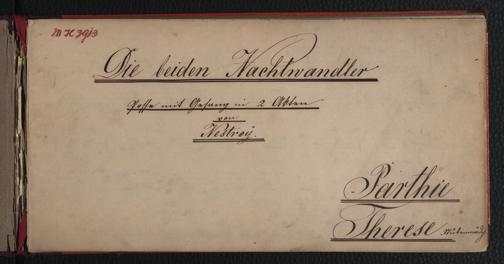 Die beiden Nachtwandler
Posse mit Gesang in 2 Akten
von
Nestroy.
Parthie
Therese